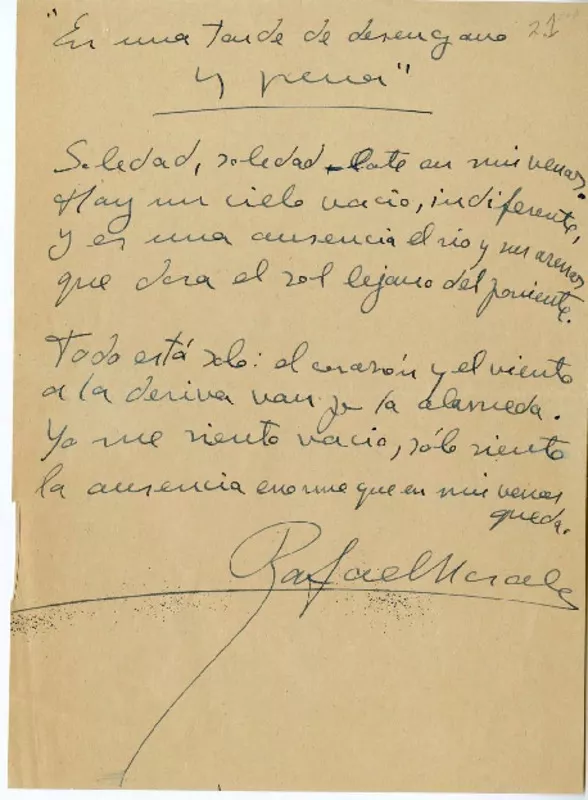 "En una tarde de desengano 21
y pena"
Soledad, soledad late en mis venas.
Hay un cielo vacio, indiferente,
y es una ausencia el rio y sus arenas
que dora el sol lejano del poniente.
Todo está solo: el corazón y el viento
a la deriva van por la alameda.
Yo me siento vacio, sólo siento
la ausencia enorme que en mis venas
queda.
Rafael Morales